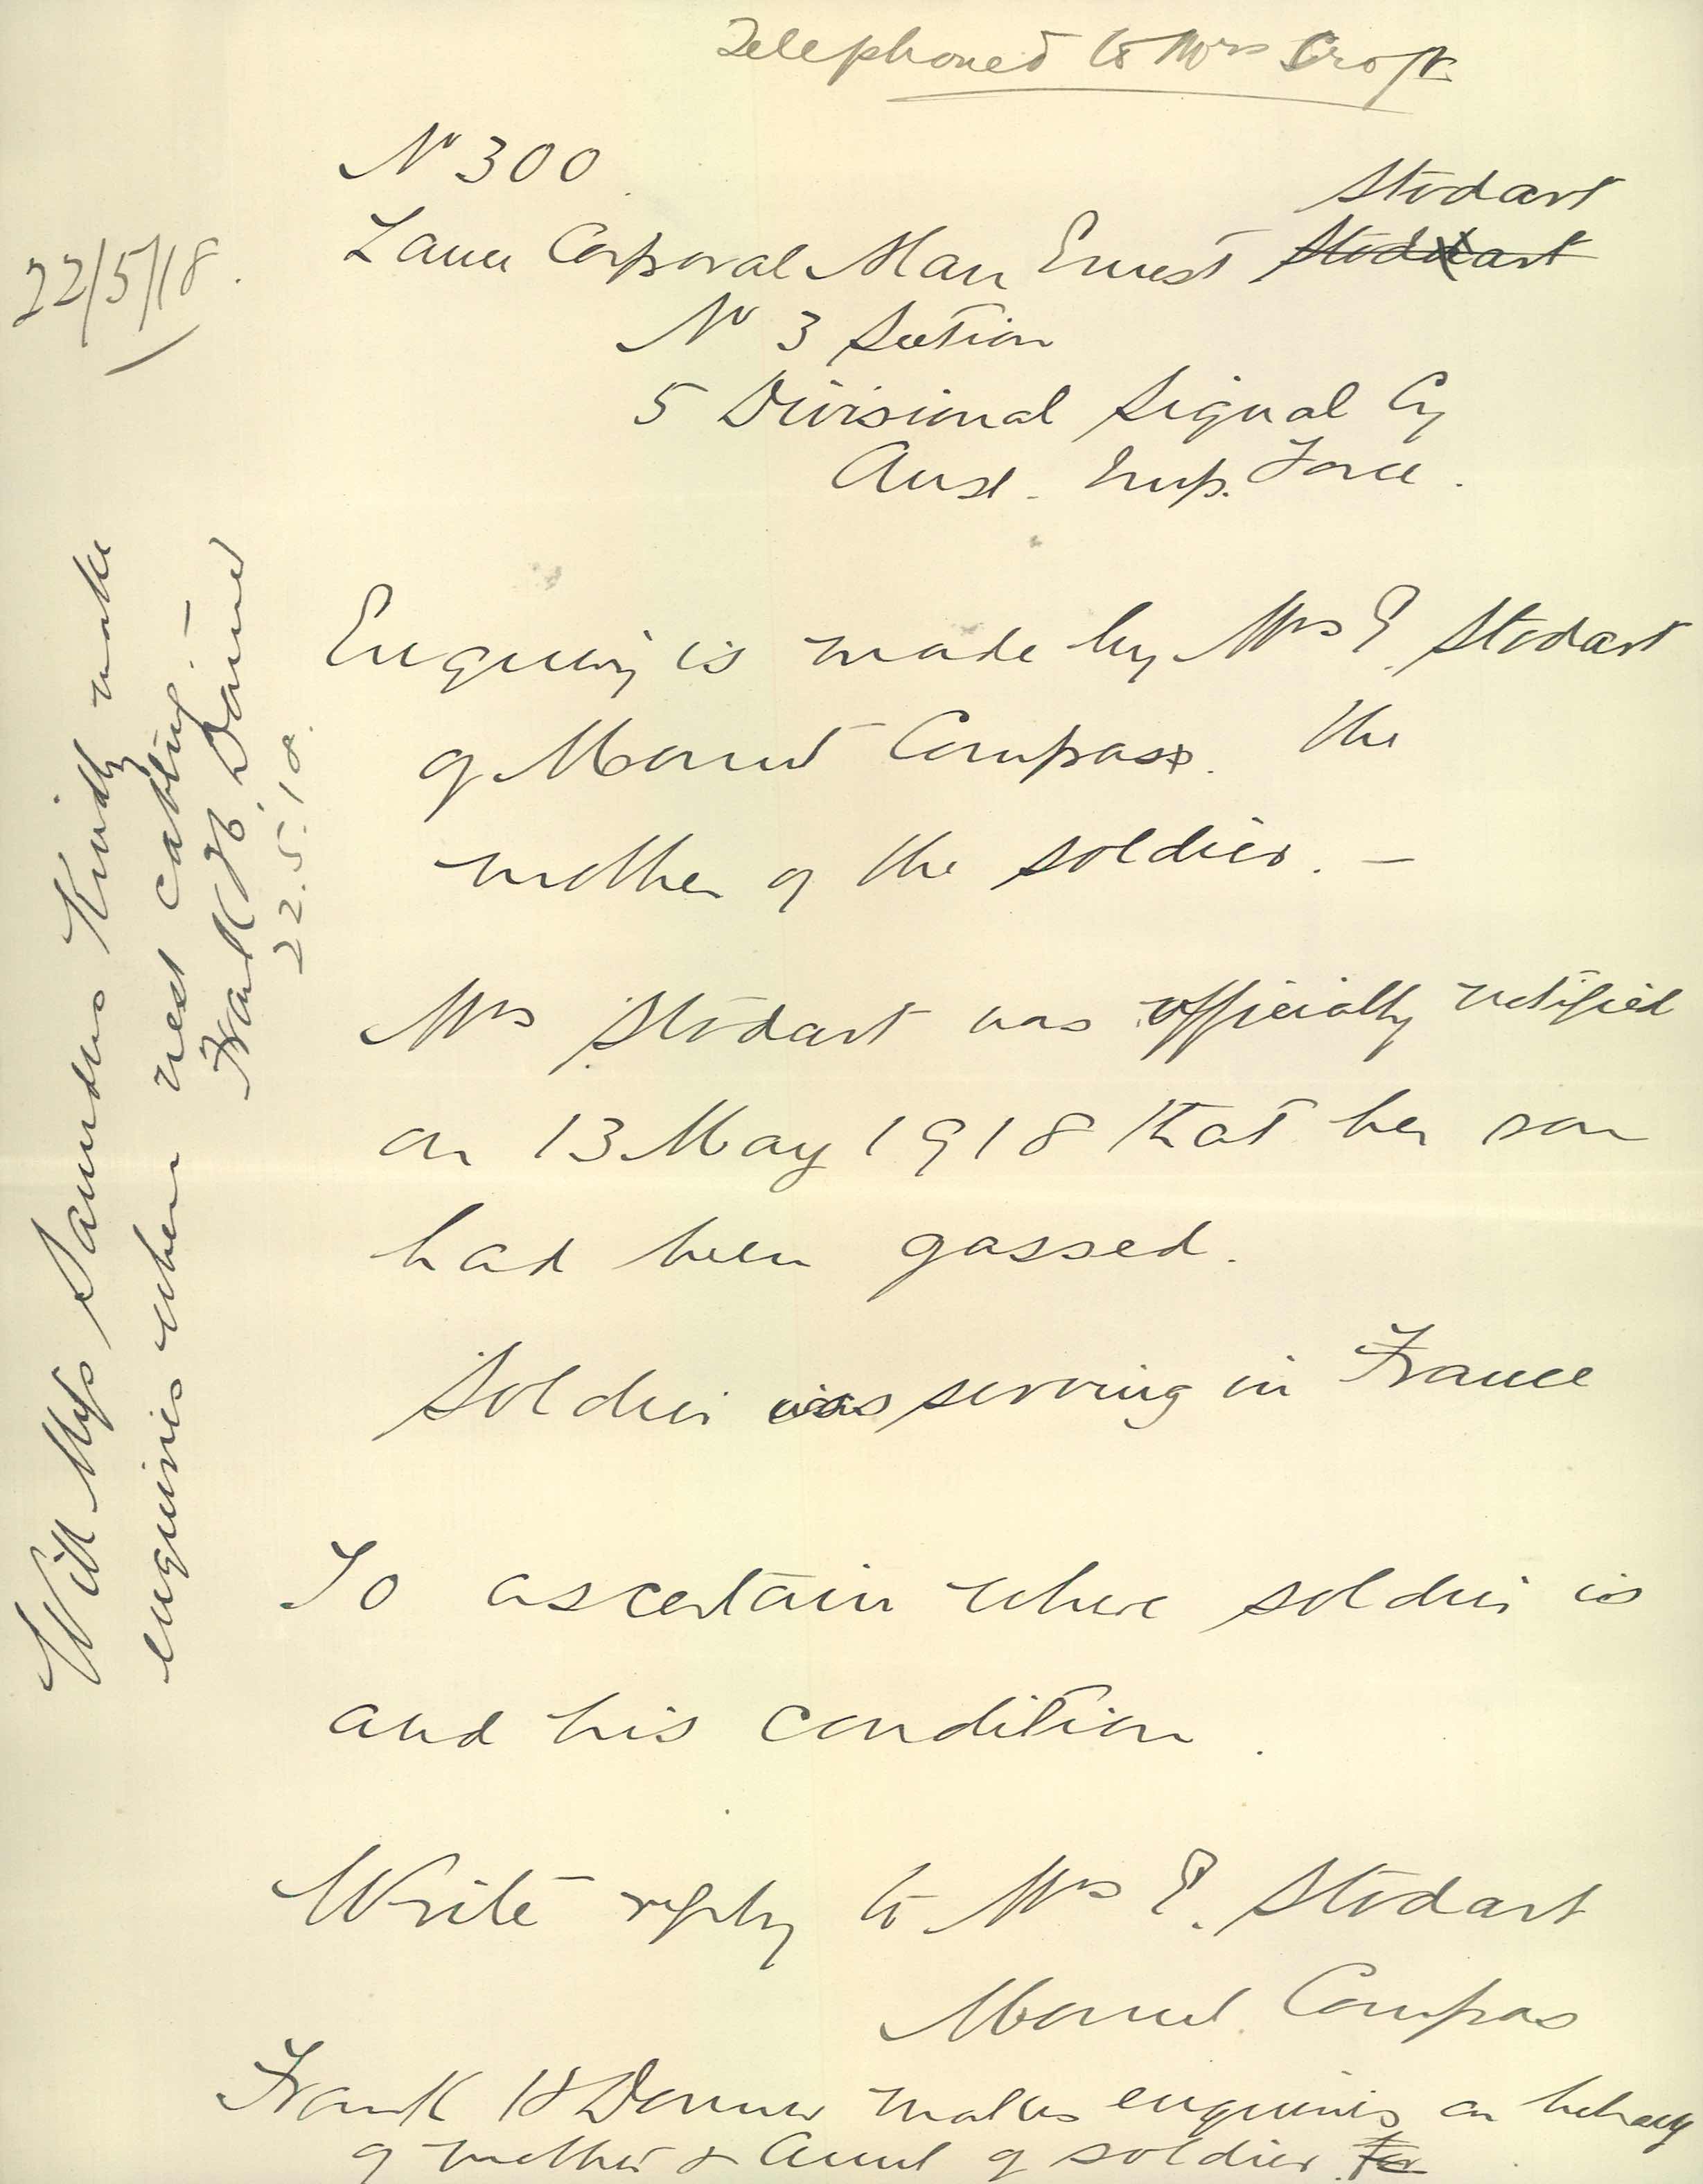 Telephoned to Mrs Croft
No 300
22/5/18.
Stodart
Lance Corporal Alan Ernest Stoddart
No 3 Section
5 Divisional Signal Cy
Aust. Imp. Force.
Enquiry is made by Mrs E. Stodart
of Mount Compass. the
mother of the soldier. —
Mrs Stodart was officially notified
on 13 May 1918 that her son
had been gassed.
Soldier was serving in France
To ascertain where soldier is
and his condition.
Write reply to Mrs E. Stodart
Mount Compass
Frank H Downer makes enquiries on behalf
of mother & Aunt of soldier for
Will Miss Saunders Kindly make
enquiries when next cabling. —
Frank H. Downer
22.5.18.